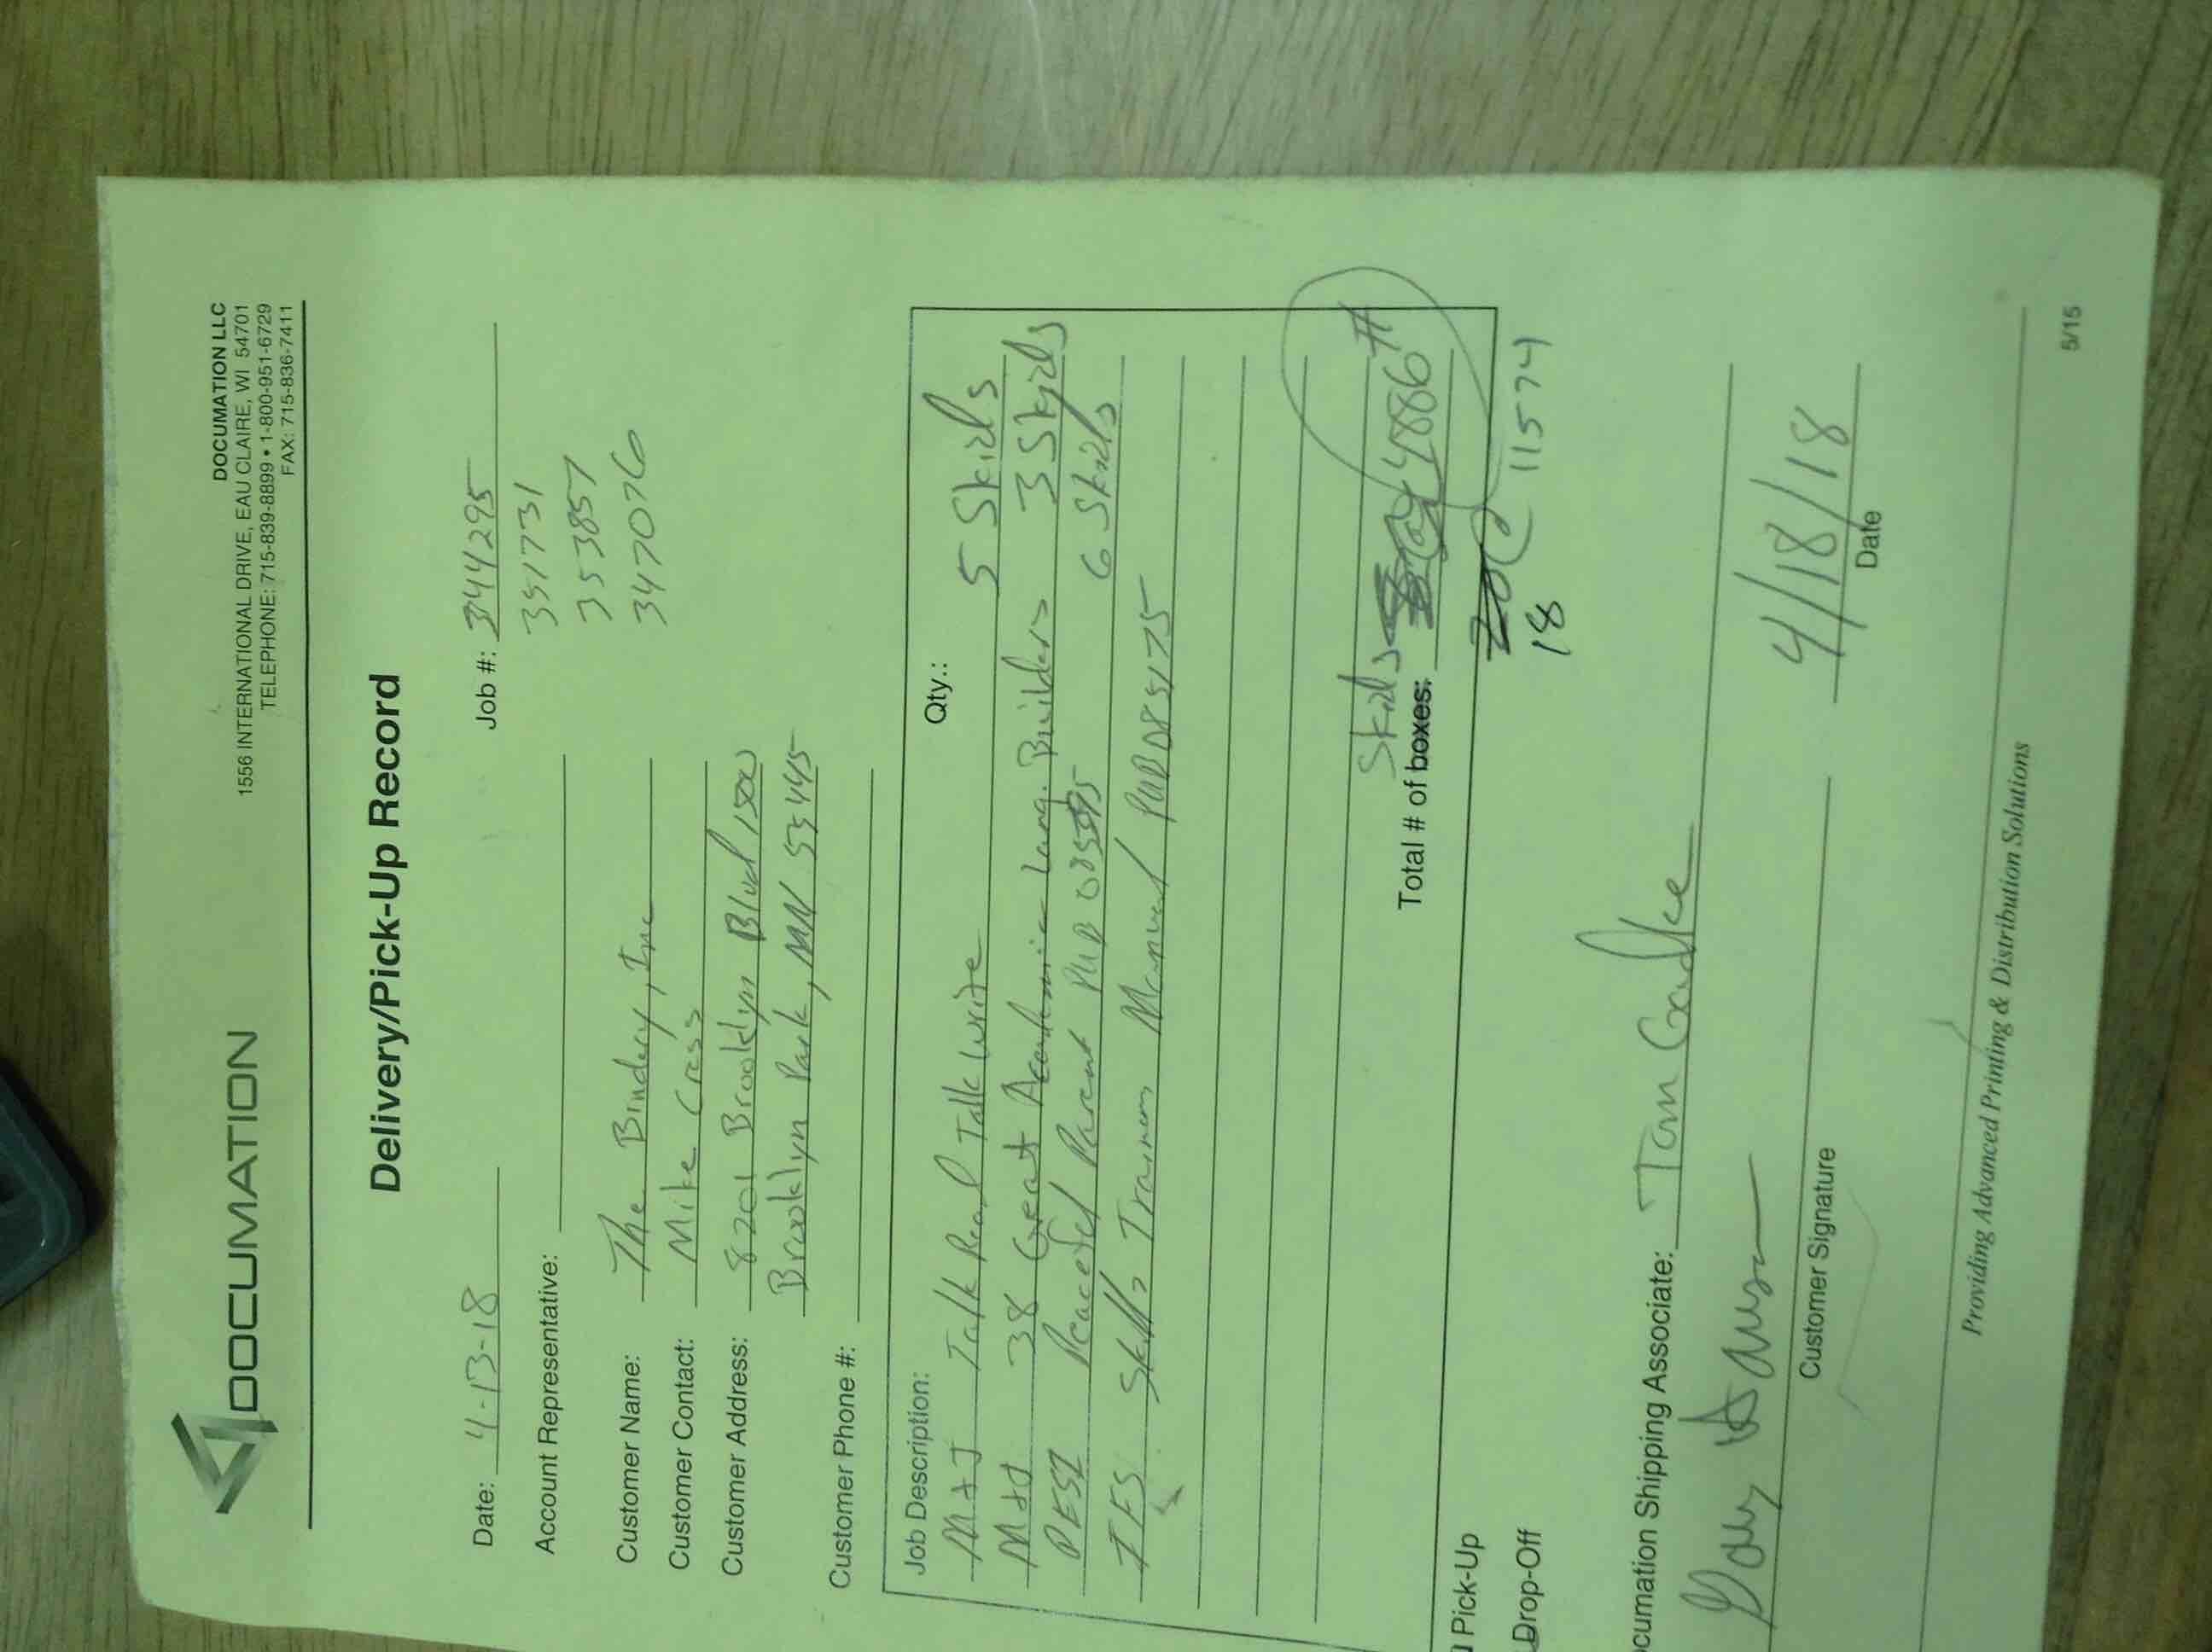 DOCUMATION
DOCUMATION LLC
1556 INTERNATIONAL DRIVE, EAU CLAIRE, WI 54701
TELEPHONE: 715-839-8899 • 1-800-951-6729
FAX: 715-836-7411
Delivery/Pick-Up Record
Date: 4-13-18 Job #: 344295
351731
Account Representative: 353857
347076
Customer Name: The Bindery, Inc
Customer Contact: Mike Cross
Customer Address: 8201 Brooklyn Blvd 1500
Brooklyn Park, MN 55445
Customer Phone #:
Job Description: Qty.:
Talk Read Talk Write 5 Skids
38 Great Academic Lang. Builders 3 Skids
PESI Peaceful Parent 6 Skids
Skills Training Manual PUB085175
Skids
Total # of boxes: 4886#
Pick-Up
Drop-Off 18 11574
cumation Shipping Associate: Tom
4/18/18
Customer Signature Date
Providing Advanced Printing & Distribution Solutions
5/15